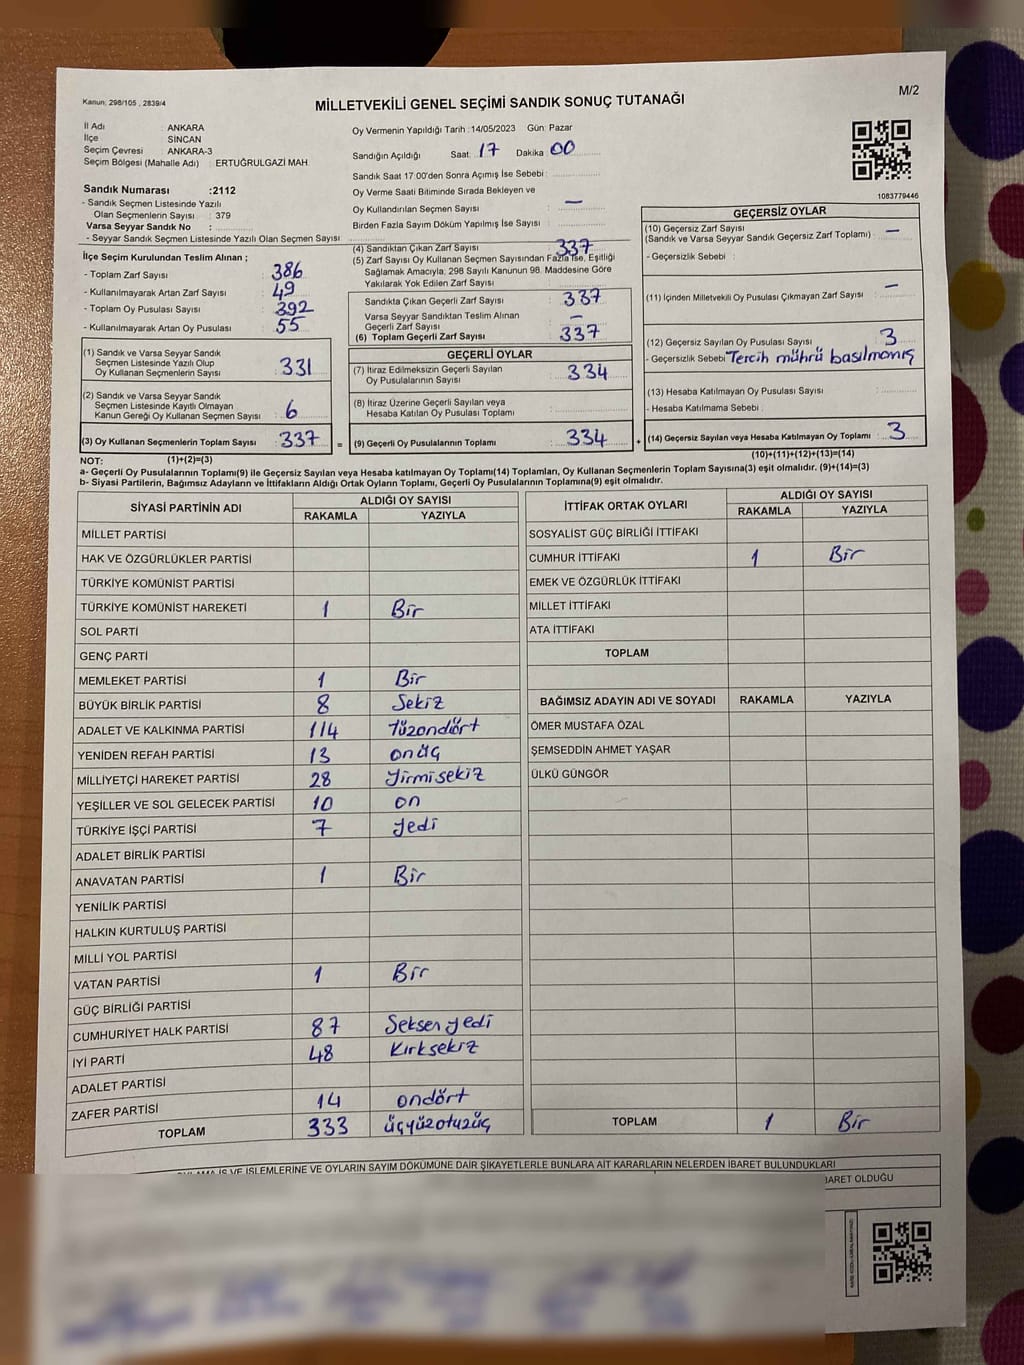 Kanun; 298/105 , 2839/4
MİLLETVEKİLİ GENEL SEÇİMİ SANDIK SONUÇ TUTANAĞI
M/2
İl Adı : ANKARA
İlçe : SİNCAN
Seçim Çevresi : ANKARA-3
Seçim Bölgesi (Mahalle Adı) : ERTUĞRULGAZİ MAH.
Sandık Numarası :2112
- Sandık Seçmen Listesinde Yazılı
Olan Seçmenlerin Sayısı : 379
Varsa Seyyar Sandık No :
- Seyyar Sandık Seçmen Listesinde Yazılı Olan Seçmen Sayısı :
Oy Vermenin Yapıldığı Tarih :14/05/2023 Gün: Pazar
Sandığın Açıldığı Saat: 17 Dakika: 00
Sandık Saat 17:00'den Sonra Açımış İse Sebebi :
Oy Verme Saati Bitiminde Sırada Bekleyen ve
Oy Kullandırılan Seçmen Sayısı : —
Birden Fazla Sayım Döküm Yapılmış İse Sayısı :
1083779446
İlçe Seçim Kurulundan Teslim Alınan ;
- Toplam Zarf Sayısı : 386
- Kullanılmayarak Artan Zarf Sayısı : 49
- Toplam Oy Pusulası Sayısı : 392
- Kullanılmayarak Artan Oy Pusulası : 55
(1) Sandık ve Varsa Seyyar Sandık
Seçmen Listesinde Yazılı Olup
Oy Kullanan Seçmenlerin Sayısı : 331
(2) Sandık ve Varsa Seyyar Sandık
Seçmen Listesinde Kayıtlı Olmayan
Kanun Gereği Oy Kullanan Seçmen Sayısı : 6
(3) Oy Kullanan Seçmenlerin Toplam Sayısı : 337 =
(1)+(2)=(3)
(4) Sandıktan Çıkan Zarf Sayısı : 337
(5) Zarf Sayısı Oy Kullanan Seçmen Sayısından Fazla İse, Eşitliği
Sağlamak Amacıyla; 298 Sayılı Kanunun 98. Maddesine Göre
Yakılarak Yok Edilen Zarf Sayısı :
Sandıkta Çıkan Geçerli Zarf Sayısı : 337
Varsa Seyyar Sandıktan Teslim Alınan
Geçerli Zarf Sayısı : —
(6) Toplam Geçerli Zarf Sayısı : 337
GEÇERLİ OYLAR
(7) İtiraz Edilmeksizin Geçerli Sayılan
Oy Pusulalarının Sayısı : 334
(8) İtiraz Üzerine Geçerli Sayılan veya
Hesaba Katılan Oy Pusulası Toplamı :
(9) Geçerli Oy Pusulalarının Toplamı : 334 +
GEÇERSİZ OYLAR
(10) Geçersiz Zarf Sayısı : —
(Sandık ve Varsa Seyyar Sandık Geçersiz Zarf Toplamı)
- Geçersizlik Sebebi :
(11) İçinden Milletvekili Oy Pusulası Çıkmayan Zarf Sayısı : —
(12) Geçersiz Sayılan Oy Pusulası Sayısı : 3
- Geçersizlik Sebebi : Tercih mührü basılmamış
(13) Hesaba Katılmayan Oy Pusulası Sayısı :
- Hesaba Katılmama Sebebi :
(14) Geçersiz Sayılan veya Hesaba Katılmayan Oy Toplamı : 3
(10)+(11)+(12)+(13)=(14)
NOT:
a- Geçerli Oy Pusulalarının Toplamı(9) ile Geçersiz Sayılan veya Hesaba katılmayan Oy Toplamı(14) Toplamları, Oy Kullanan Seçmenlerin Toplam Sayısına(3) eşit olmalıdır. (9)+(14)=(3)
b- Siyasi Partilerin, Bağımsız Adayların ve İttifakların Aldığı Ortak Oyların Toplamı, Geçerli Oy Pusulalarının Toplamına(9) eşit olmalıdır.
SİYASİ PARTİNİN ADI ALDIĞI OY SAYISI
RAKAMLA YAZIYLA
MİLLET PARTİSİ
HAK VE ÖZGÜRLÜKLER PARTİSİ
TÜRKİYE KOMÜNİST PARTİSİ
TÜRKİYE KOMÜNİST HAREKETİ 1 Bir
SOL PARTİ
GENÇ PARTİ
MEMLEKET PARTİSİ 1 Bir
BÜYÜK BİRLİK PARTİSİ 8 Sekiz
ADALET VE KALKINMA PARTİSİ 114 Yüzondört
YENİDEN REFAH PARTİSİ 13 onüç
MİLLİYETÇİ HAREKET PARTİSİ 28 Yirmisekiz
YEŞİLLER VE SOL GELECEK PARTİSİ 10 on
TÜRKİYE İŞÇİ PARTİSİ 7 Yedi
ADALET BİRLİK PARTİSİ
ANAVATAN PARTİSİ 1 Bir
YENİLİK PARTİSİ
HALKIN KURTULUŞ PARTİSİ
MİLLİ YOL PARTİSİ
VATAN PARTİSİ 1 Bir
GÜÇ BİRLİĞİ PARTİSİ
CUMHURİYET HALK PARTİSİ 87 Seksen yedi
İYİ PARTİ 48 Kırksekiz
ADALET PARTİSİ
ZAFER PARTİSİ 14 ondört
TOPLAM 333 üçyüzotuzüç
İTTİFAK ORTAK OYLARI ALDIĞI OY SAYISI
RAKAMLA YAZIYLA
SOSYALİST GÜÇ BİRLİĞİ İTTİFAKI
CUMHUR İTTİFAKI 1 Bir
EMEK VE ÖZGÜRLÜK İTTİFAKI
MİLLET İTTİFAKI
ATA İTTİFAKI
TOPLAM
BAĞIMSIZ ADAYIN ADI VE SOYADI RAKAMLA YAZIYLA
ÖMER MUSTAFA ÖZAL
ŞEMSEDDİN AHMET YAŞAR
ÜLKÜ GÜNGÖR
TOPLAM 1 Bir
İŞ VE İŞLEMLERİNE VE OYLARIN SAYIM DÖKÜMÜNE DAİR ŞİKAYETLERLE BUNLARA AİT KARARLARIN NELERDEN İBARET BULUNDUKLARI
OLDUĞU